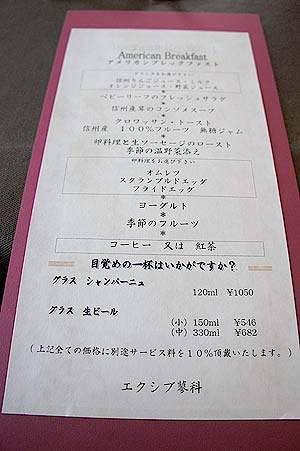 American Breakfast
アメリカンブレックファスト
ドリンクをお選び下さい
信州りんごジュース・ミルク
オレンジジュース・野菜ジュース
*
ベビーリーフのフレッシュサラダ
*
信州産茸のコンソメスープ
*
クロワッサン・トースト
信州産 100%フルーツ 無糖ジャム
*
卵料理と生ソーセージのロースト
季節の温野菜添え
卵料理をお選び下さい
オムレツ
スクランブルドエッグ
フライドエッグ
*
ヨーグルト
*
季節のフルーツ
*
コーヒー 又は 紅茶
目覚めの一杯はいかがですか?
グラス シャンパーニュ
120ml ¥1050
グラス 生ビール
(小) 150ml ¥546
(中) 330ml ¥682
(上記全ての価格に別途サービス料を10%頂戴いたします。)
エクシブ蓼科